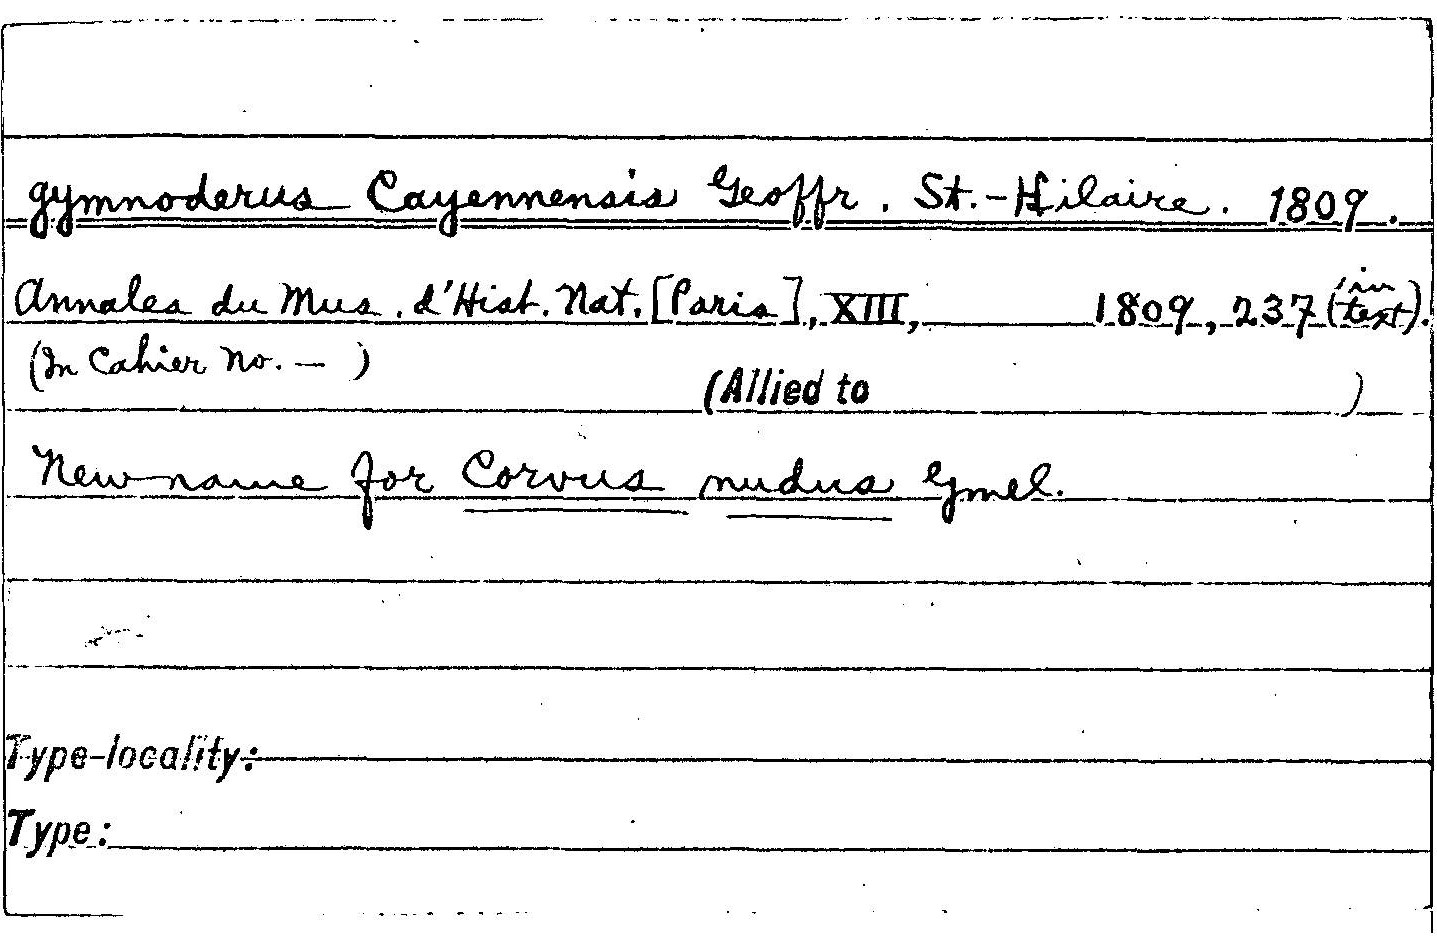 Gymnoderus Cayennensis Geoffr. St.-Hilaire. 1809.
Annales du Mus. d'Hist. Nat. [Paris], XIII, 1809, 237 (in text).
(In Cahier No. — )
(Allied to )
New name for Corvus nudus Gmel.
Type-locality:
Type: